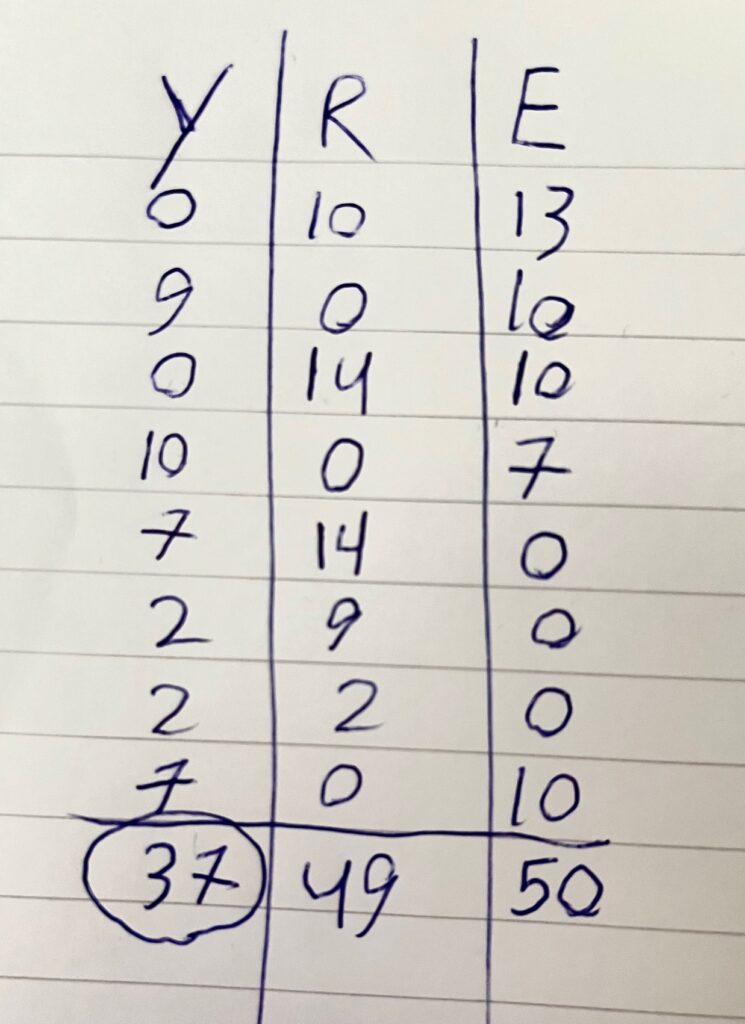 Y R E
0 10 13
9 0 10
0 14 10
10 0 7
7 14 0
2 9 0
2 2 0
7 0 10
37 49 50